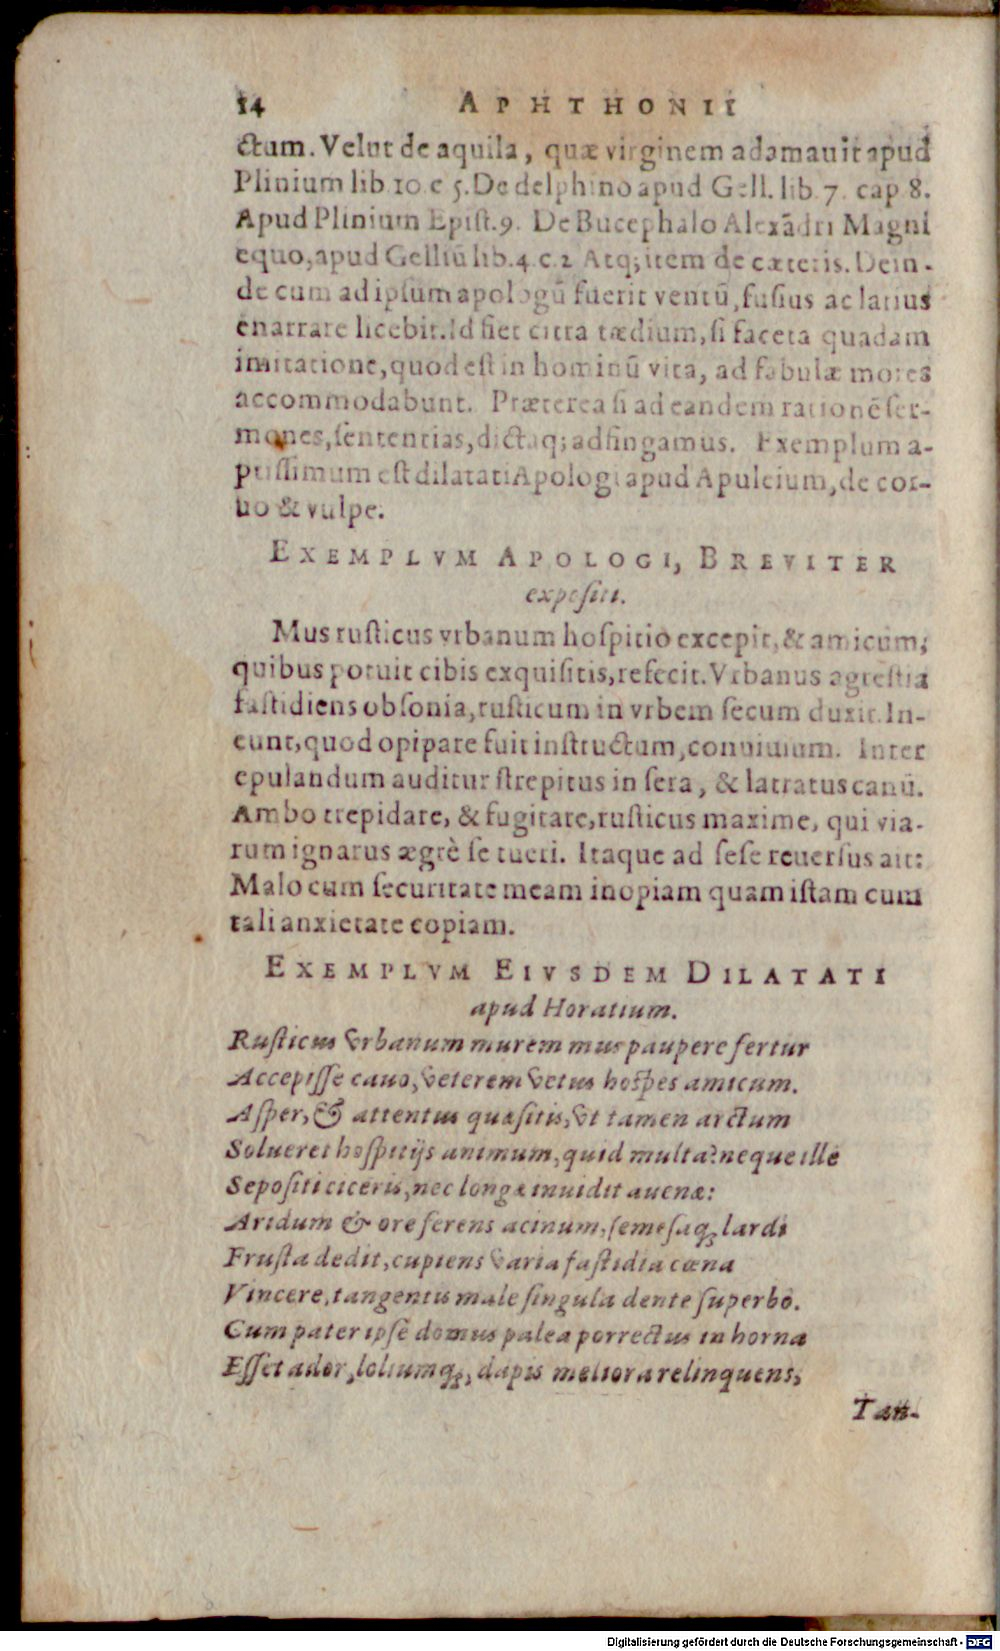 14 APHTHONII
ctum. Velut de aquila, quæ virginem adamauit apud
Plinium lib 10. c 5. De delphino apud Gell. lib 7. cap 8.
Apud Plinium Epist. 9. De Bucephalo Alexãdri Magni
equo, apud Gelliũ lib. 4. c. 2 Atq; item de cæteris. Dein-
de cum ad ipsum apologũ fuerit ventũ, fusius ac latius
enarrare licebit. Id fiet citra tædium, si faceta quadam
imitatione, quod est in hominũ vita, ad fabulæ mores
accommodabunt. Præterea si ad eandem rationẽ ser-
mones, sententias, dictaq; adfingamus. Exemplum a-
ptissimum est dilatati Apologi apud Apuleium, de cor-
uo & vulpe.
EXEMPLVM APOLOGI, BREVITER
expositi.
Mus rusticus vrbanum hospitio excepit, & amicum,
quibus potuit cibis exquisitis, refecit. Vrbanus agrestia
fastidiens obsonia, rusticum in vrbem secum duxit. In-
eunt, quod opipare fuit instructum, conuiuium. Inter
epulandum auditur strepitus in sera, & latratus canũ.
Ambo trepidare, & fugitare, rusticus maxime, qui via-
rum ignarus ægrè se tueri. Itaque ad sese reuersus ait:
Malo cum securitate meam inopiam quam istam cum
tali anxietate copiam.
EXEMPLVM EIVSDEM DILATATI
apud Horatium.
Rusticus vrbanum murem mus paupere fertur
Accepisse cauo, veterem vetus hospes amicum.
Asper, & attentus quæsitis, vt tamen arctum
Solueret hospitijs animum, quid multa? neque ille
Sepositi ciceris, nec longæ inuidit auenæ:
Aridum & ore ferens acinum, semesaq; lardi
Frusta dedit, cupiens varia fastidia cœna
Vincere, tangentis male singula dente superbo.
Cum pater ipse domus palea porrectus in horna
Esset ador, loliumq;, dapis meliora relinquens,
Tan-
Digitalisierung gefördert durch die Deutsche Forschungsgemeinschaft - DFG